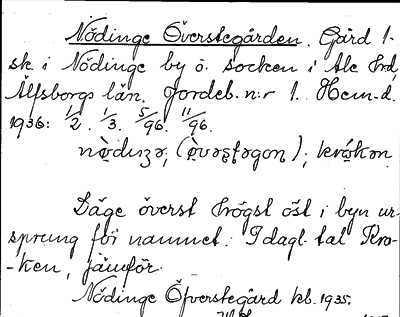 Nödinge Överstegården. Gård 1-
sk. i Nödinge by o. socken i Ale hrd,
Älfsborgs län. Jordeb. n:r 1. Hem.-d.
1936: 1/2. 1/3. 5/96. 11/96.
Läge överst högst öst i byn ur-
sprung för namnet. I dagl. tal Kro-
-ken, jämför
Nödinge Öfverstegård kb. 1935.